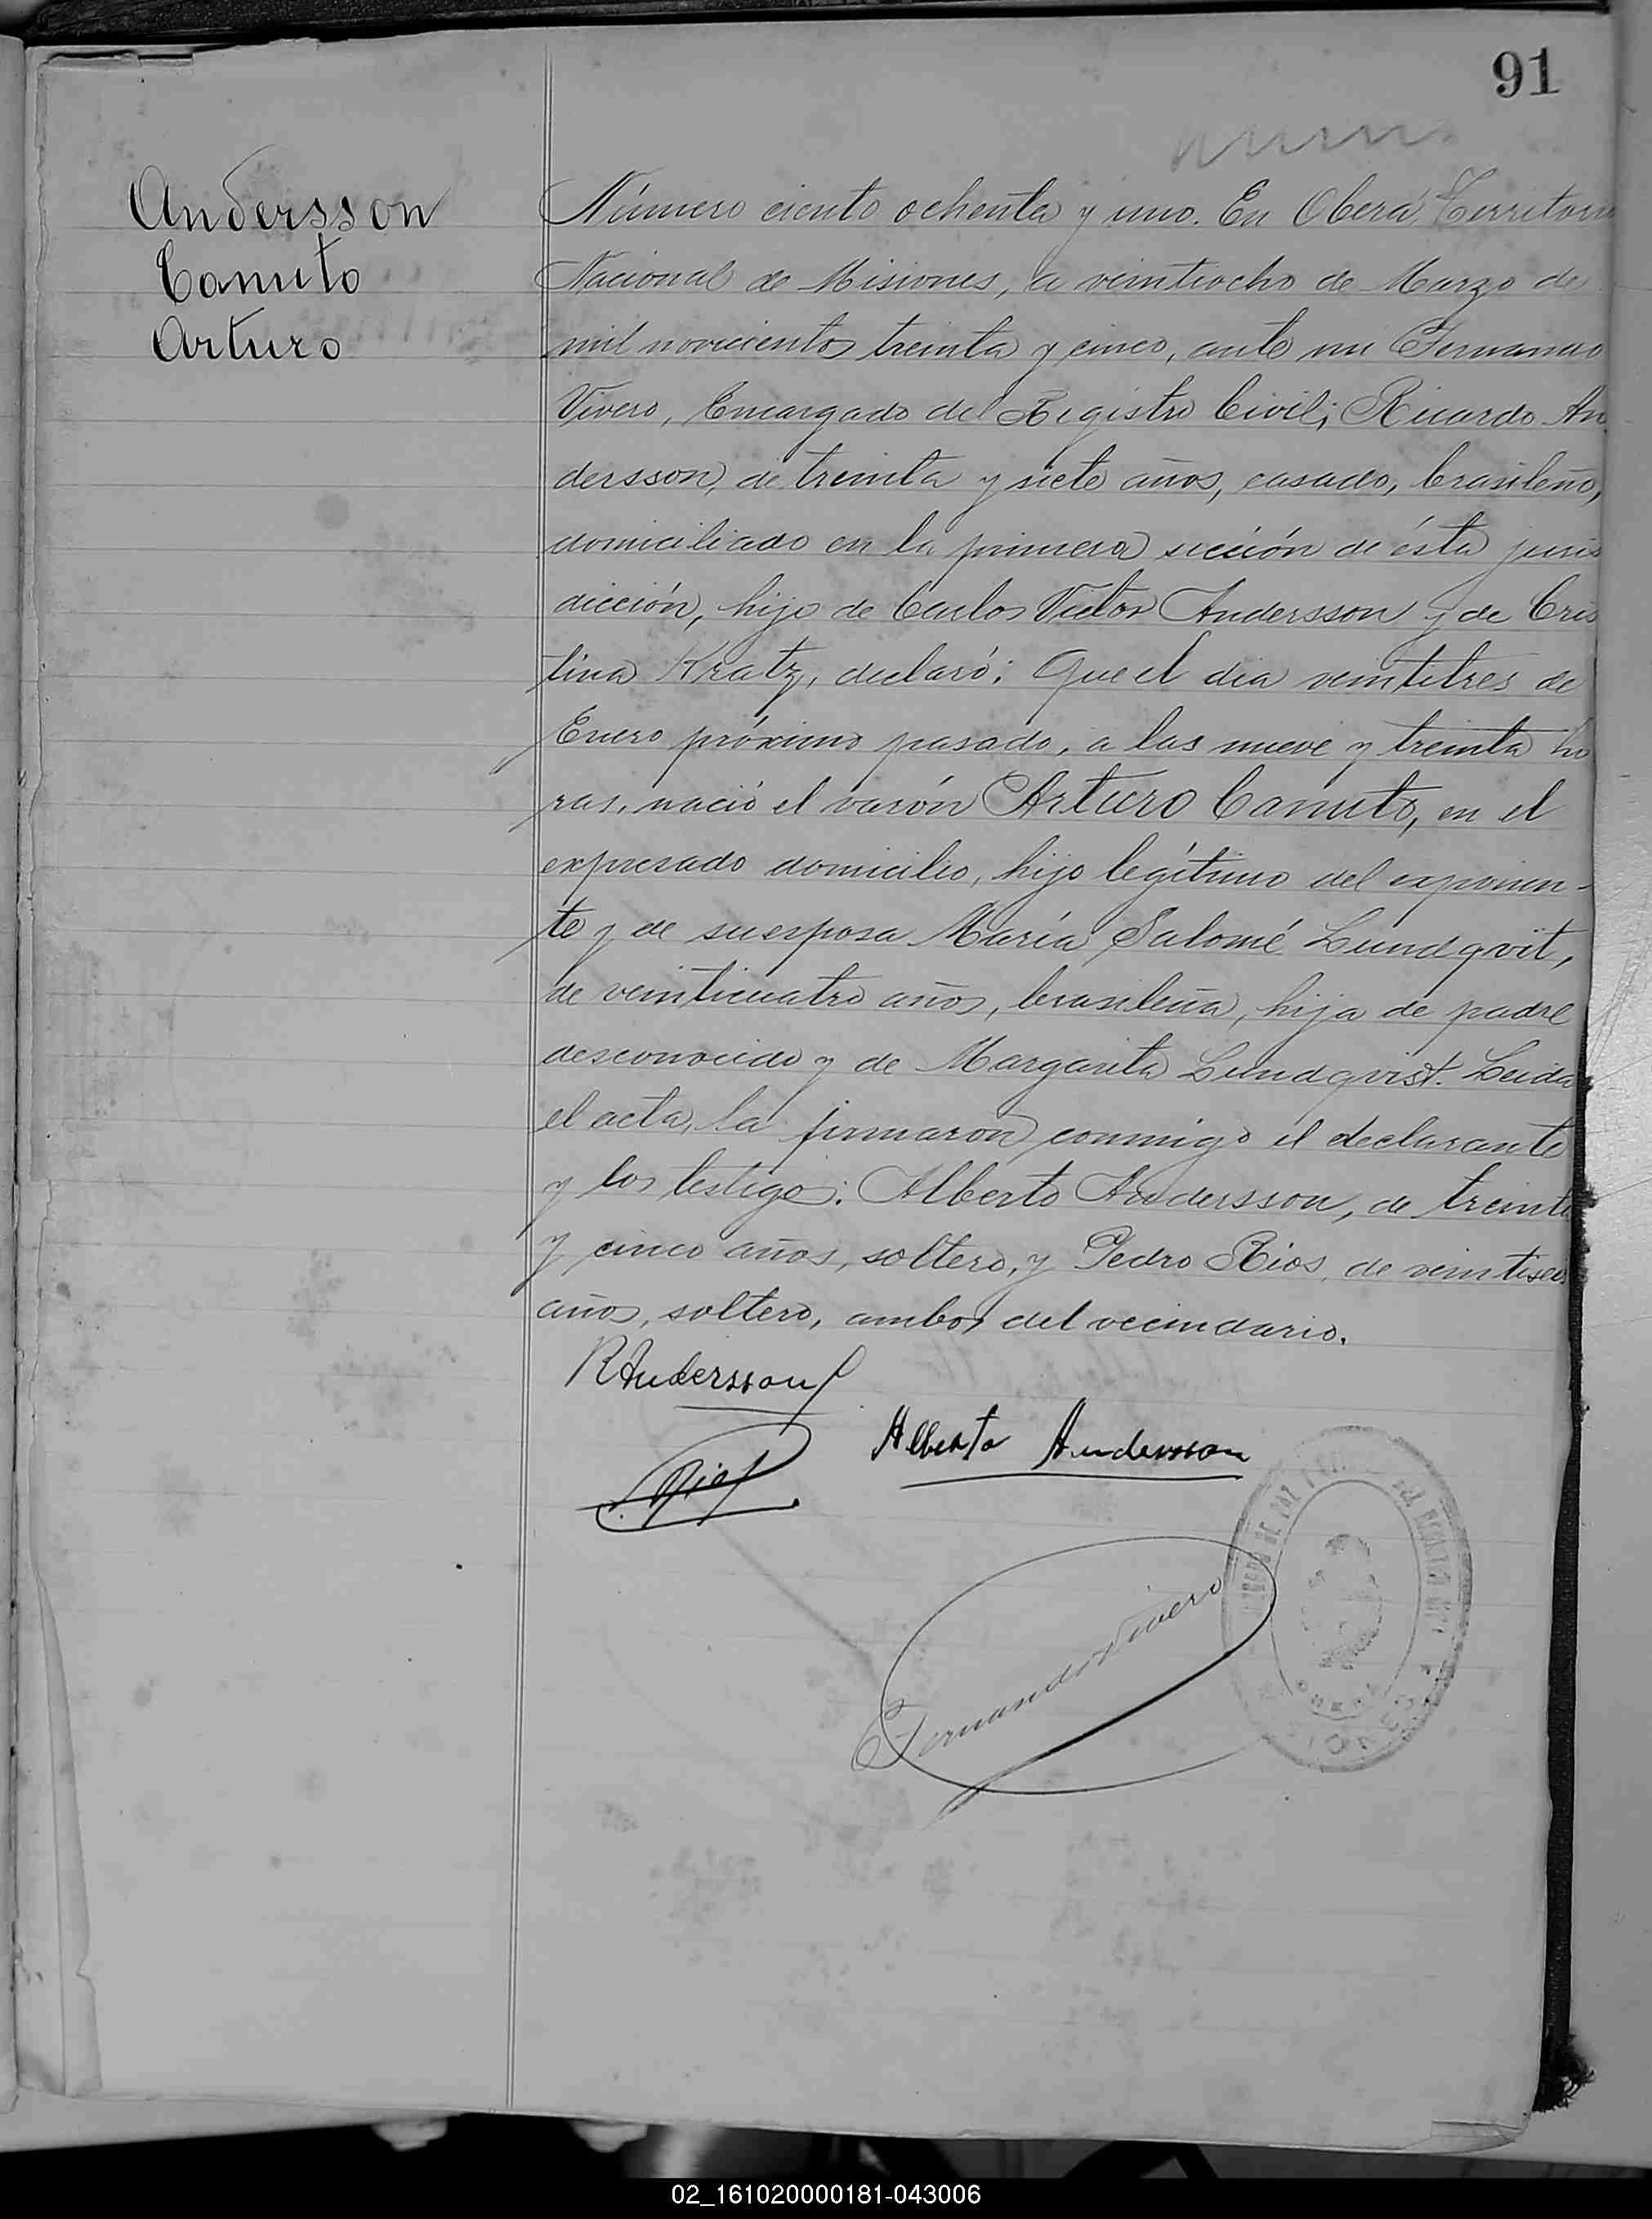 91
Andersson
Canuto
Arturo
Número ciento ochenta y uno. En Obera, Territorio
Nacional de Misiones, a veintiocho de Marzo de
mil novecientos treinta y cinco, ante mi Fernando
Vivero, Encargado del Registro Civil; Ricardo An
dersson, de treinta y siete años, casado, brasileño,
domiciliado en la primera sección de ésta juris
dicción, hijo de Carlos Victor Andersson y de Cris
tina Kratz, declaró: Que el dia veintitres de
Enero próximo pasado, a las nueve y treinta ho
ras, nació el varón Arturo Canuto, en el
expresado domicilio, hijo legítimo del exponen-
te y de su esposa María Salomé Lundqvit,
de veinticuatro años, brasileña, hija de padre
desconocido y de Margarita Lundqvist. Leida
el acta, la firmaron conmigo el declarante
y los testigos: Alberto Andersson, de treinta
y cinco años, soltero, y Pedro Rios, de veintiseis
años, soltero, ambos del vecindario.
RAndersson
Alberto Andersson
P. Rios
Fernando Vivero
02_161020000181-043006